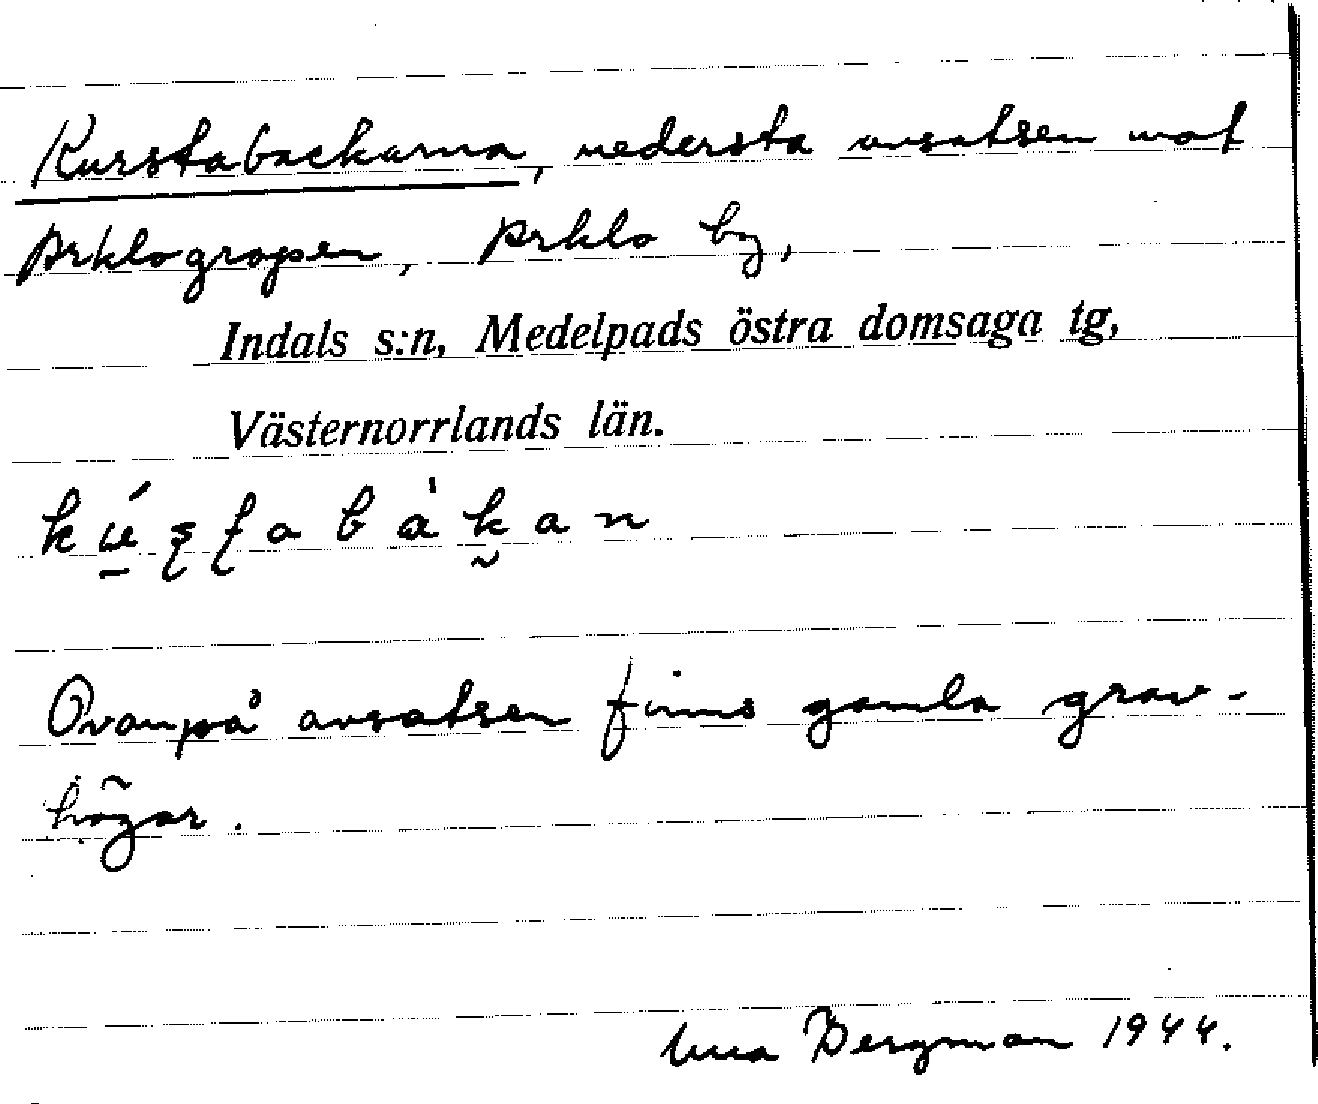 Kurstabackarna, nedersta avsatsen mot
Arklogropen, Arklo by,
Indals s:n, Medelpads östra domsaga tg,
Västernorrlands län.
Ovanpå avsatsen finns gamla grav-
högar.
Bergman 1944.